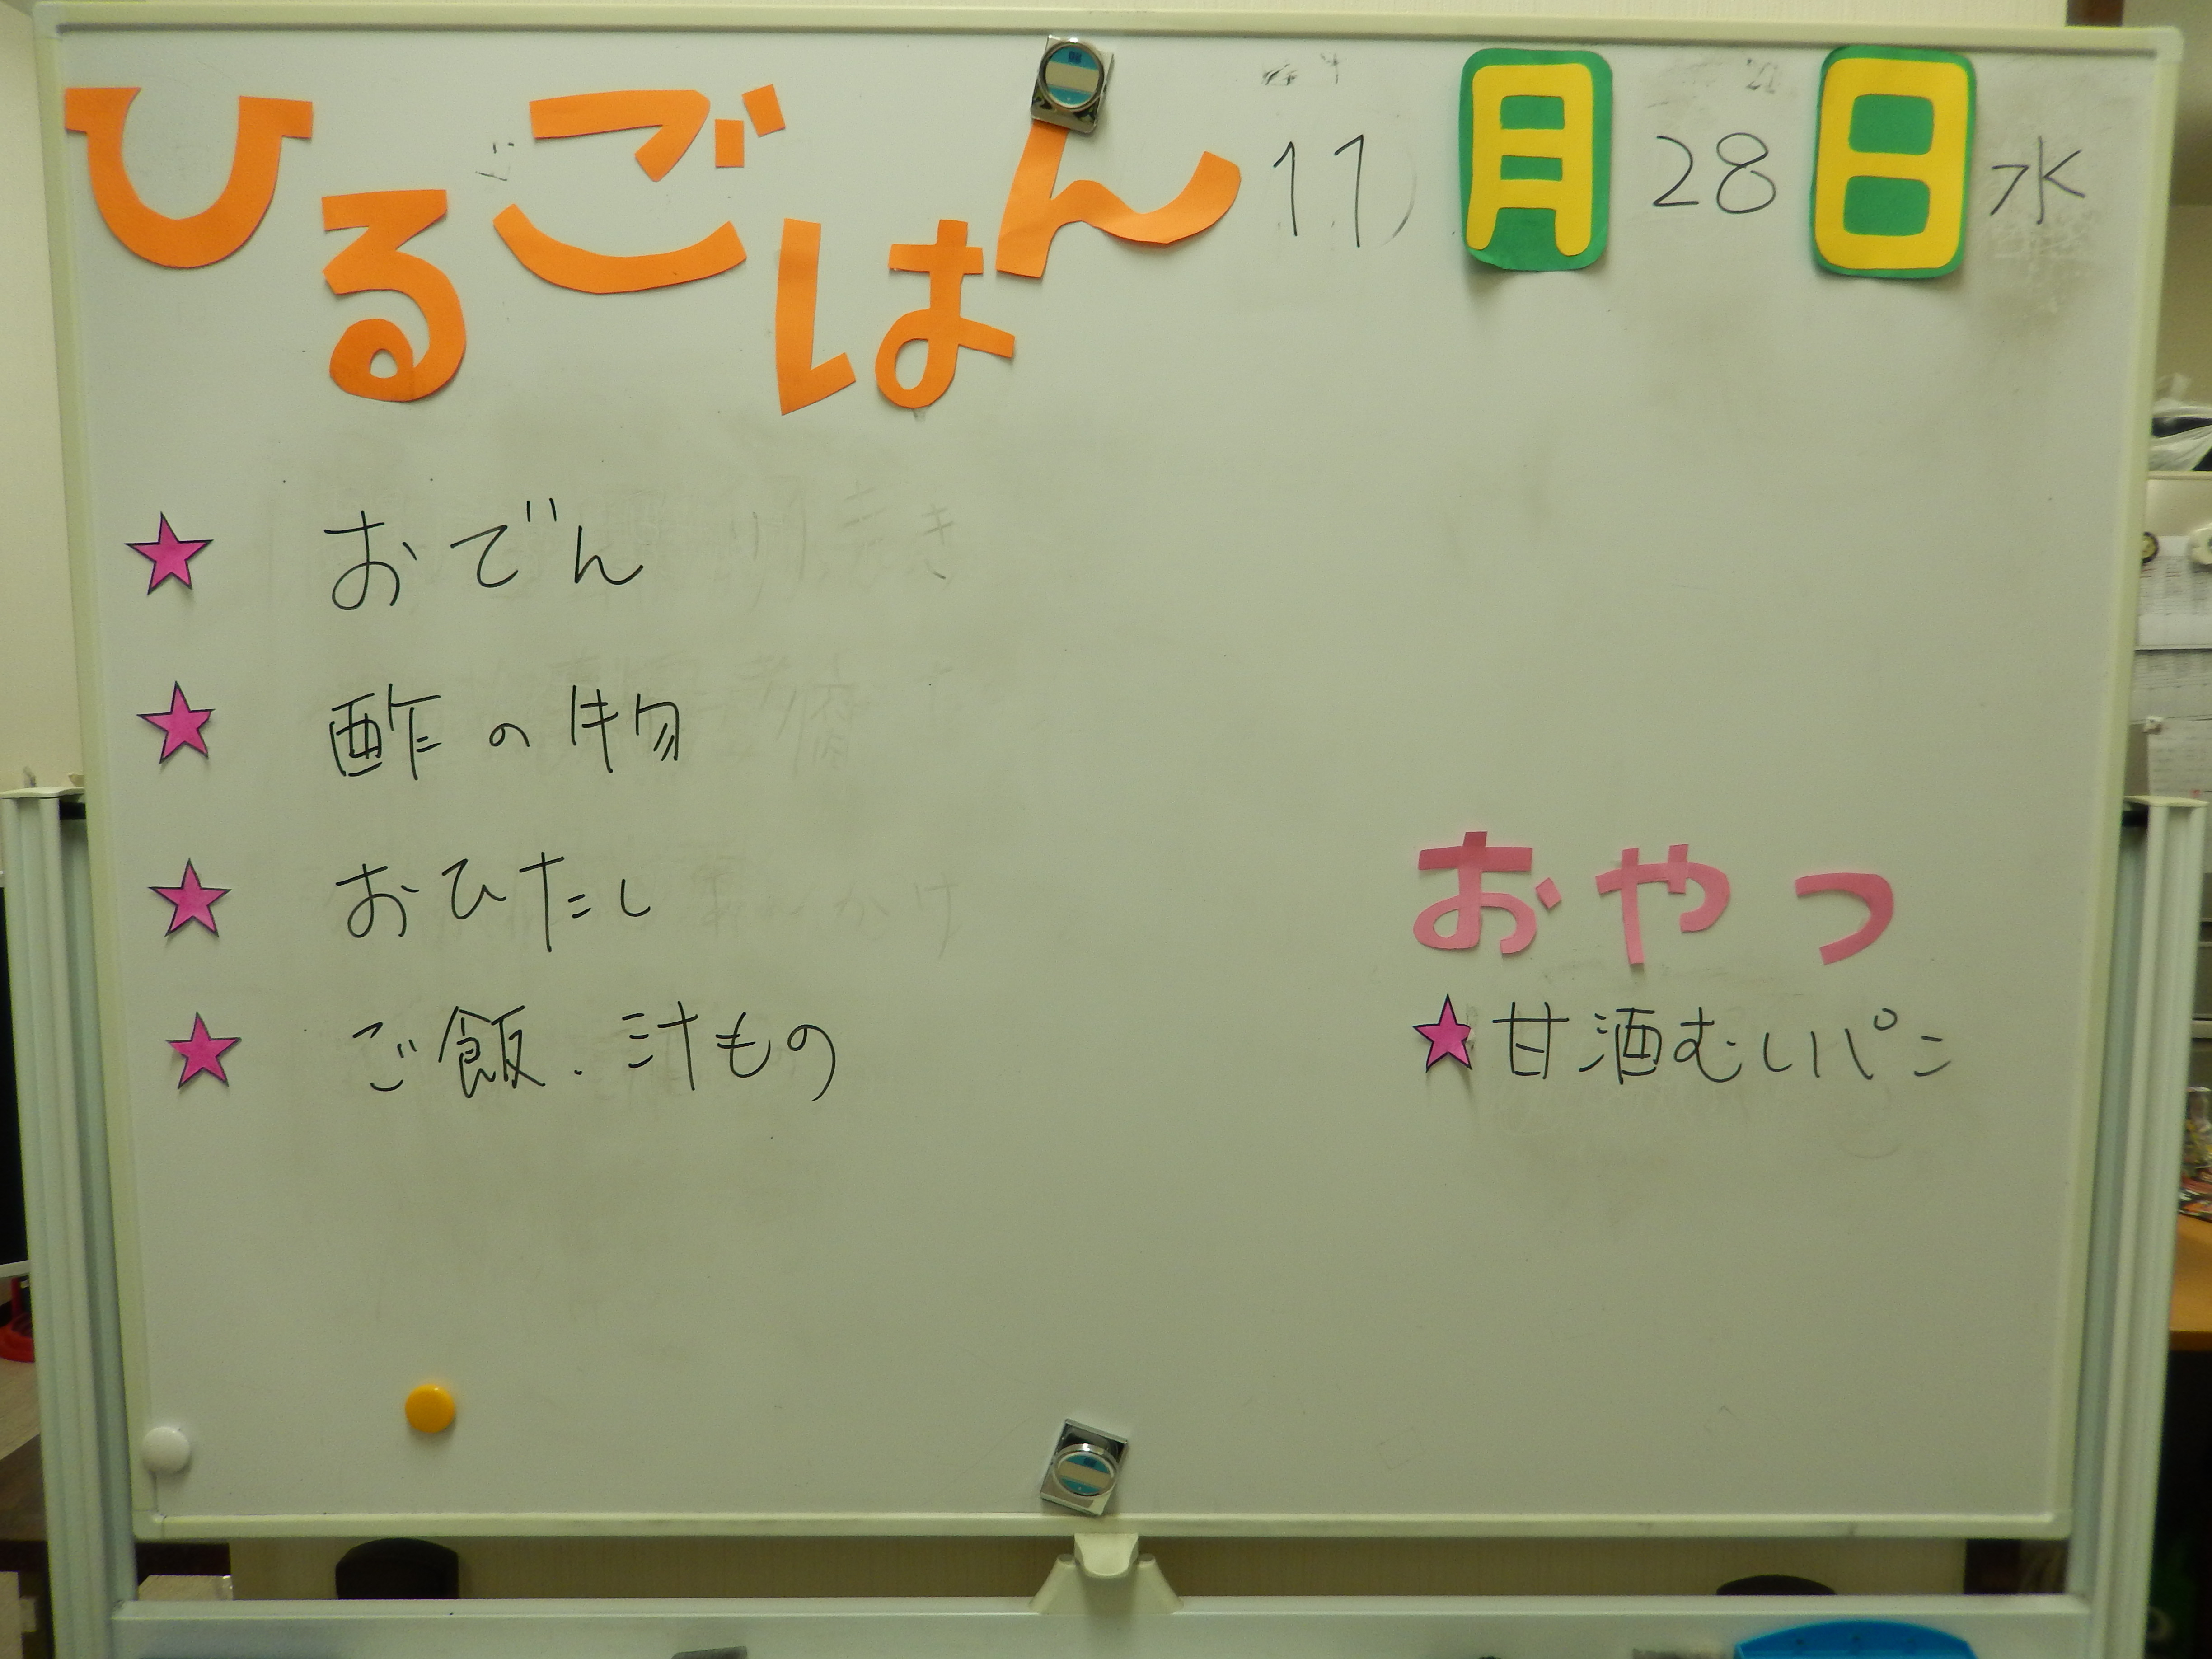 ひるごはん 11月28日 水
★ おでん
★ 酢の物
★ おひたし
★ ご飯.汁もの
おやつ
★甘酒むしパン